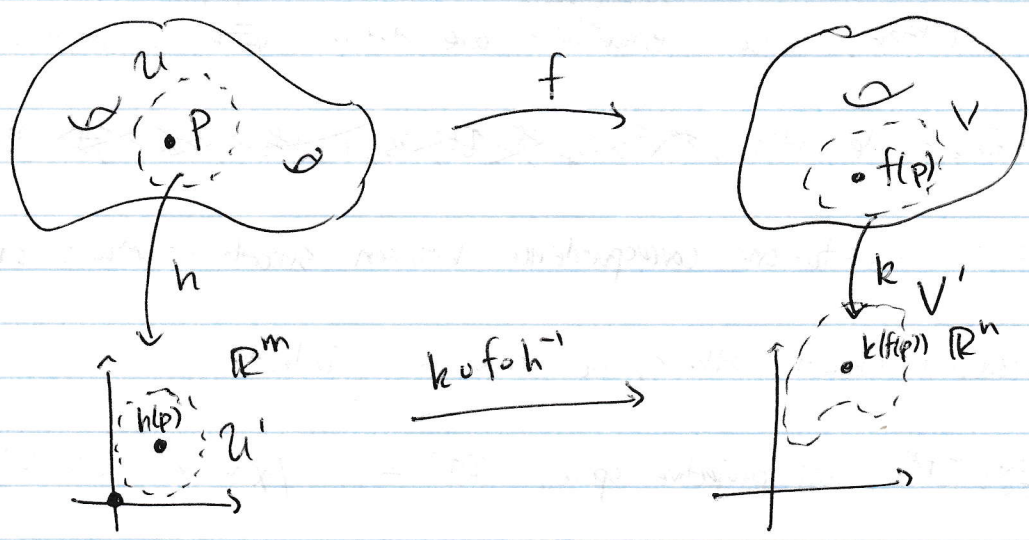 U
p
f
V
f(p)
h
k
V'
ℝᵐ
k∘f∘h⁻¹
k(f(p)) ℝⁿ
h(p)
U'